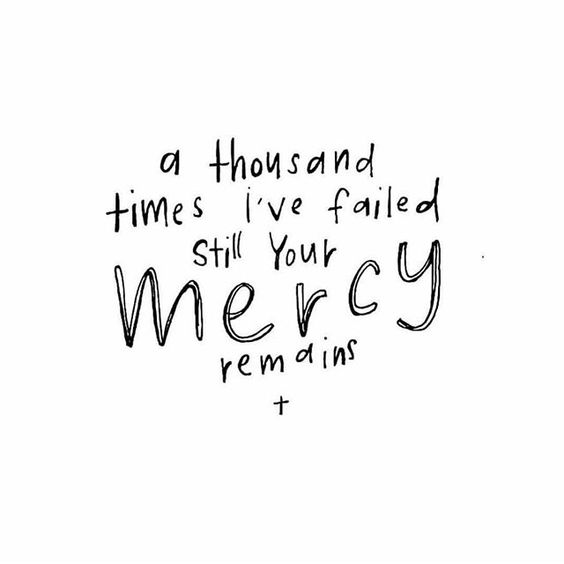 a thousand
times i've failed
still Your
mercy
remains
†